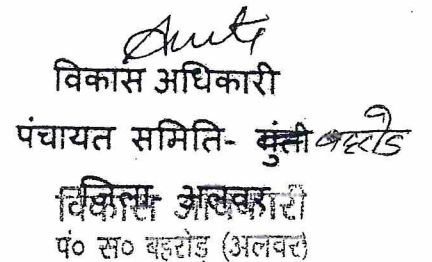 विकास अधिकारी
पंचायत समिति- मुंती बहरोड
जिला- अलवर
विकास अधिकारी
पं० स० बहरोड़ (अलवर)